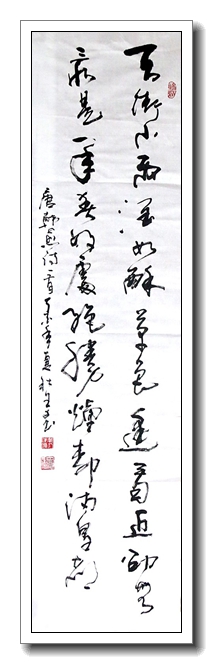 天街小雨润如酥草色遥看近却无
最是一年春好处绝胜烟柳满皇都
唐韩愈诗一首